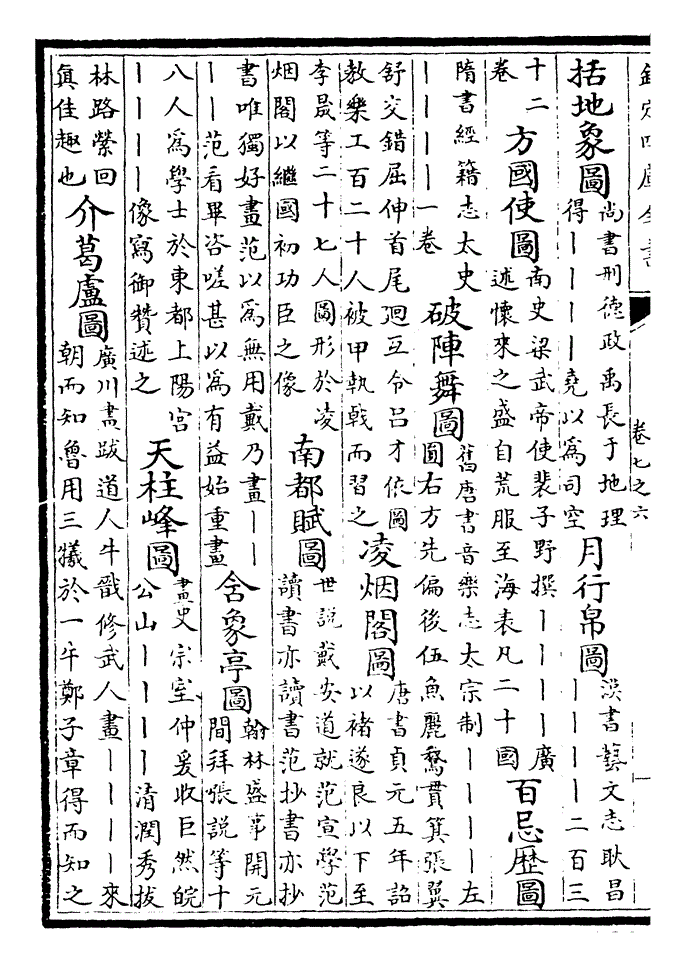 欽定四庫全書 卷七之六
括地象圖 尚書刑德政禹長于地理得丨丨丨丨堯以為司空 月行帛圖 漢書藝文志耿昌丨丨丨丨二百三
十二卷 方國使圖 南史梁武帝使裴子野撰丨丨丨丨廣述懷來之盛自荒服至海表凡二十國 百忌歴圖
隋書經籍志太史丨丨丨丨一卷 破陣舞圖 舊唐書音樂志太宗制丨丨丨丨左圓右方先偏後伍魚麗鵞貫箕張翼
舒交錯屈伸首尾廻互令呂才依圖教樂工百二十人被甲執戟而習之 凌烟閣圖 唐書貞元五年詔以褚遂良以下至
李晟等二十七人圖形於凌烟閣以繼國初功臣之像 南都賦圖 世説戴安道就范宣學范讀書亦讀書范抄書亦抄
書唯獨好畫范以為無用戴乃畫丨丨丨丨范看畢咨嗟甚以為有益始重畫 含象亭圖 翰林盛事開元間拜張説等十
八人為學士於東都上陽宫丨丨丨丨像寫御贊述之 天柱峰圖 畫史宗室仲爰收巨然皖公山丨丨丨丨清潤秀拔
林路縈回真佳趣也 介葛盧圖 廣川畫跋道人牛戩修武人畫丨丨丨丨來朝而知魯用三犧於一牛鄭子章得而知之